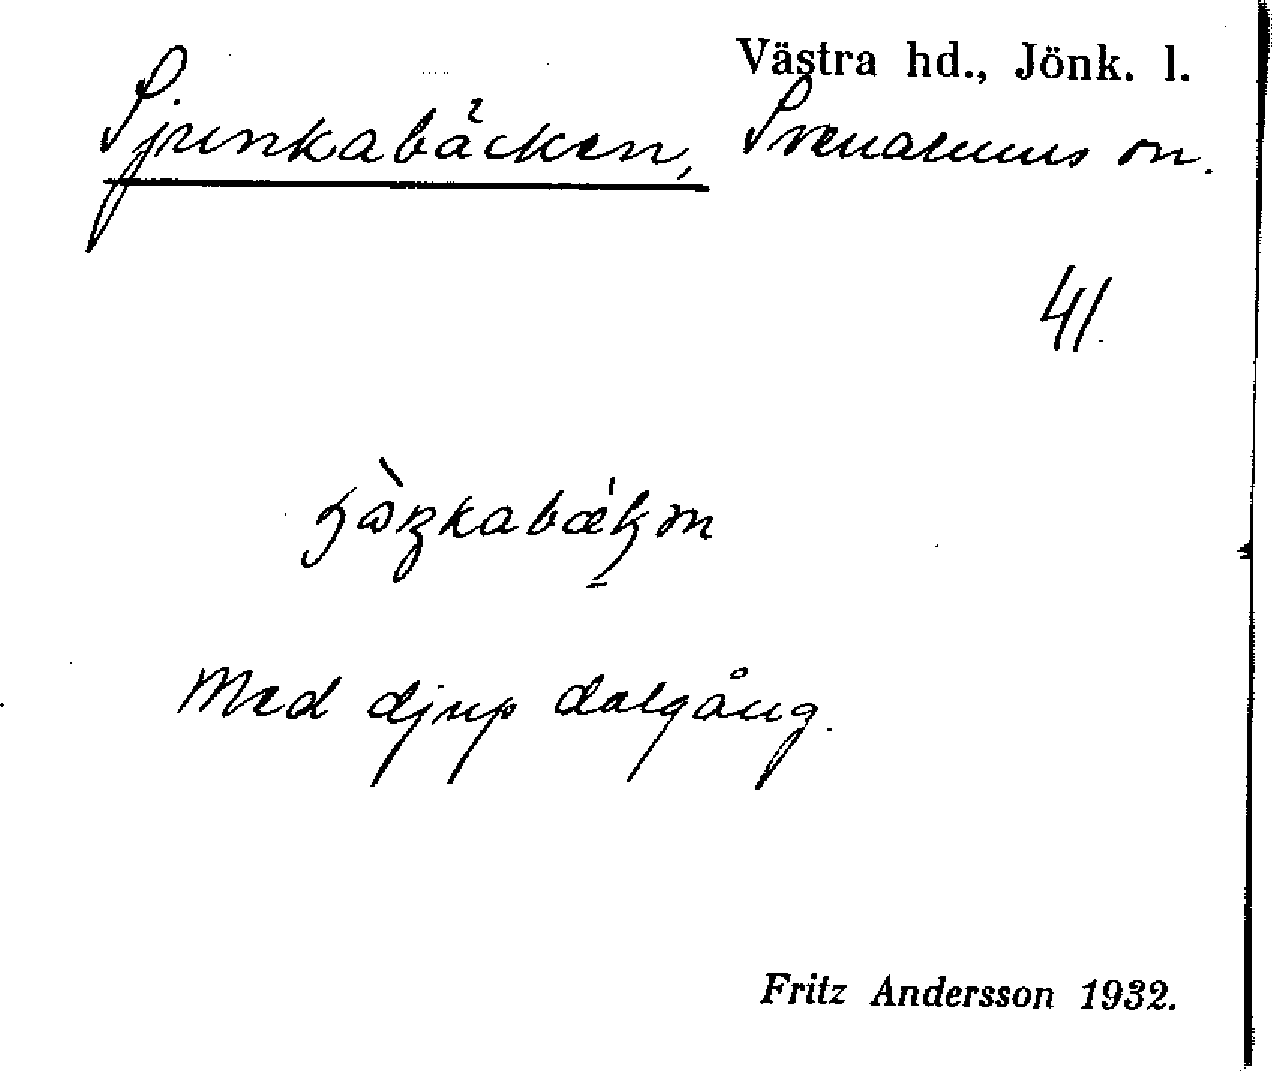 Västra hd., Jönk. l.
Sjunkabäcken, Svenarums sn.
41.
Med djup dalgång.
Fritz Andersson 1932.